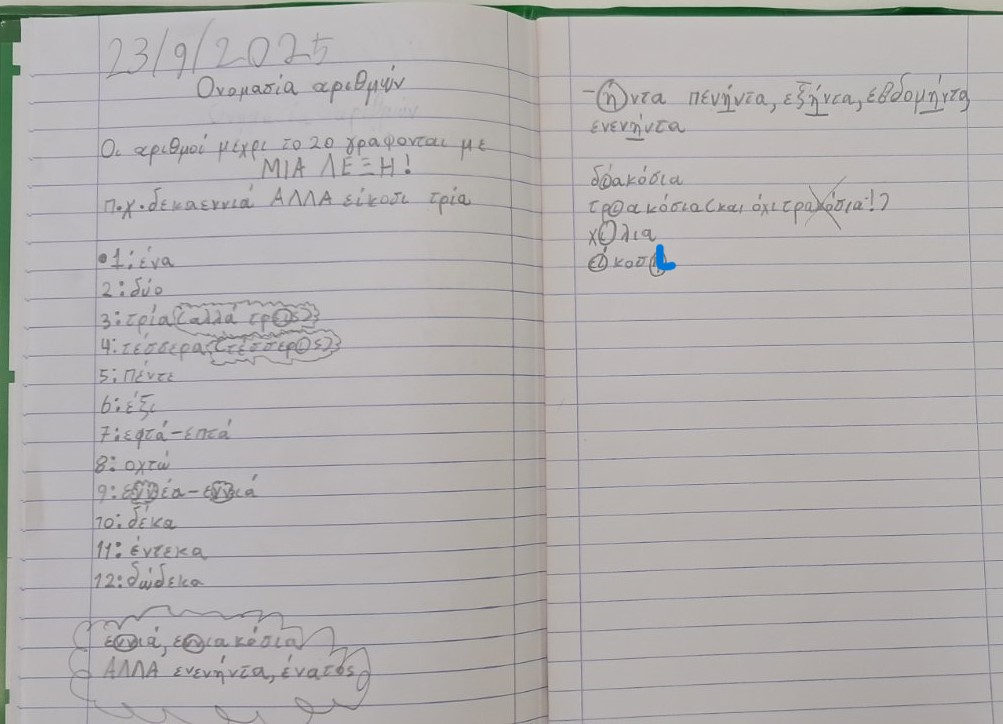 23/9/2025
Ονομασία αριθμών
Οι αριθμοί μέχρι το 20 γράφονται με
ΜΙΑ ΛΕΞΗ!
π.χ. δεκαεννιά ΑΛΛΑ είκοσι τρία
• 1: ένα
2: δύο
3: τρία (αλλά τρεις)
4: τέσσερα (τέσσερις)
5: πέντε
6: έξι
7: εφτά - επτά
8: οχτώ
9: εννέα - εννιά
10: δέκα
11: έντεκα
12: δώδεκα
εννιά, εννιακόσια
ΑΛΛΑ ενενήντα, ένατος
- ήντα πενήντα, εξήντα, εβδομήντα
ενενήντα
διακόσια
τριακόσια (και όχι τρακόσια!)
χίλια
είκοσι